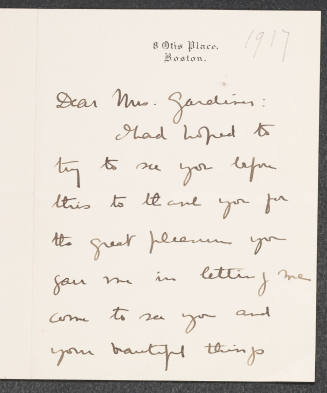 8 Otis Place.
Boston.
1917
Dear Mrs. Gardiner:
I had hoped to
try to see you before
this to thank you for
the great pleasure you
gave me in letting me
come to see you and
your beautiful things